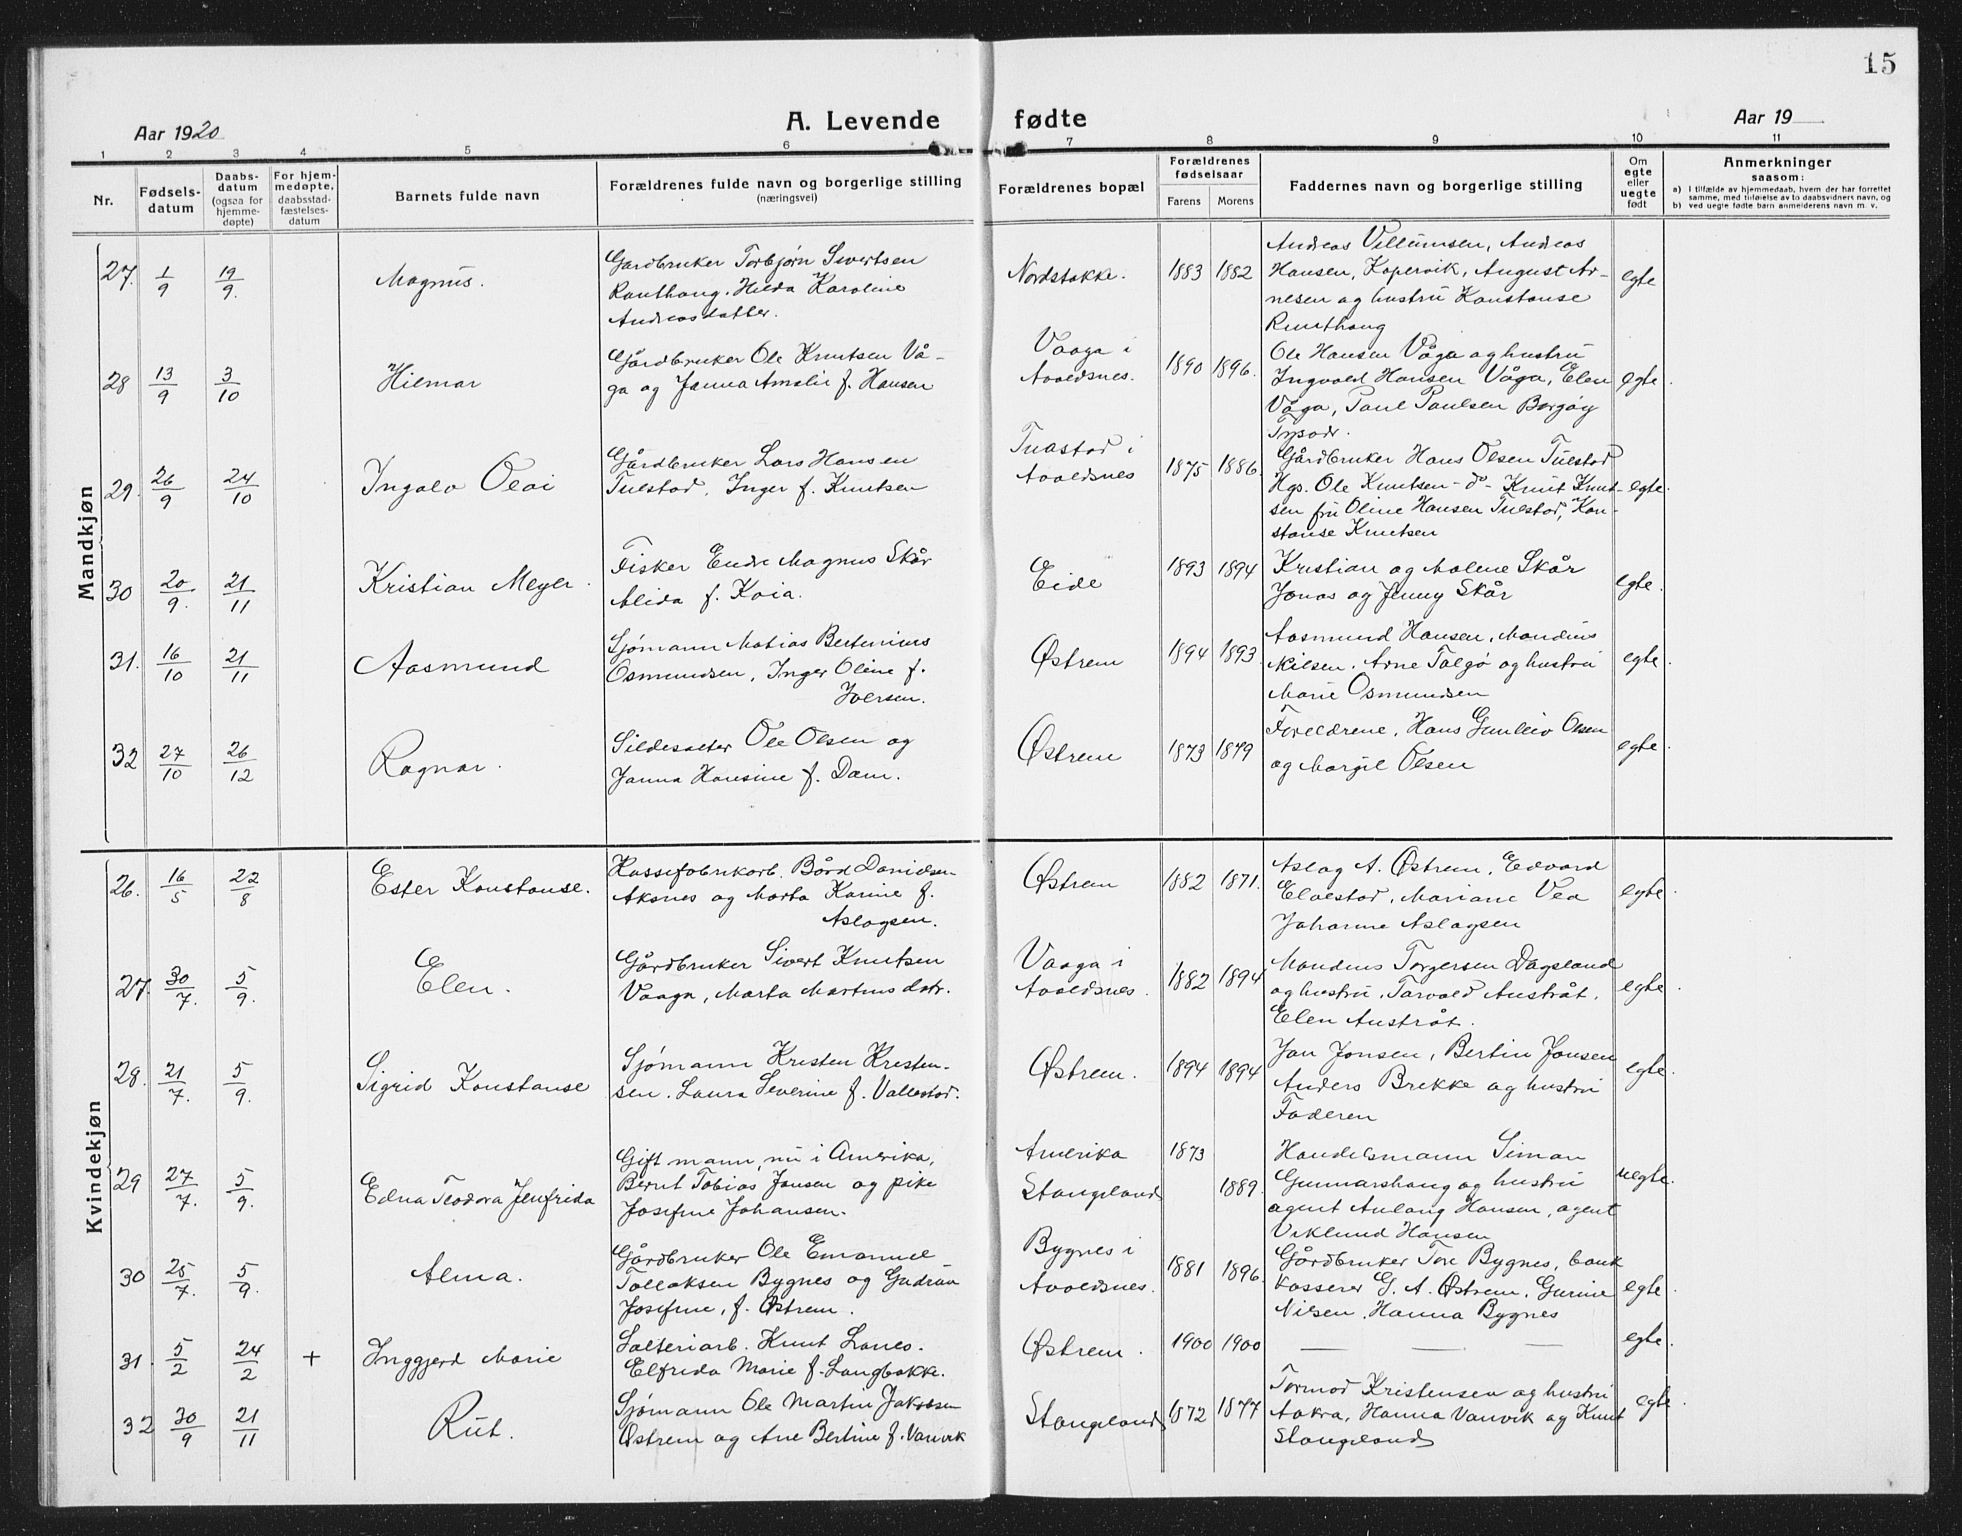 15
Aar 1920
A. Levende fødte
Aar 19
1 2 3 4 5 6 7 8 9 10 11
Nr.
Fødsels-
datum
Daabs-
datum
(ogsaa for
hjemme-
døpte)
For hjem-
medøpte,
daabsstad-
fæstelses-
datum
Barnets fulde navn
Forældrenes fulde navn og borgerlige stilling
(næringsvei)
Forældrenes bopæl
Forældrenes
fødselsaar
Farens Morens
Faddernes navn og borgerlige stilling
Om
egte
eller
uegte
født
Anmerkninger
saasom:
a) I tilfælde av hjemmedaab, hvem der har forrettet
samme, med tilføielse av to daabsvidners navn, og
b) ved uegte fødte barn anmelderens navn m. v.
Mandkjøn
27. 1/9 19/9.
Magnus.
Gardbruker Torbjørn Sivertsen
Hilda Karoline
Andreasdatter.
Nordstokke.
1883 1882
Andreas Villumsen, Andreas
Hansen, Kopervik, August Ar-
nesen og hustru Konstanse
egte
28 13/9 3/10
Hilmar
Gårdbruker Ole Knutsen Vå-
ga og Janna Amalie f. Hansen
Vaaga i
Avaldsnes.
1890 1896.
Ole Hansen Våga og hustru
Ingvald Hansen Våga, Elen
Våga, Paul Paulsen Borgøy
egte.
29. 26/9 24/10
Ingolv Olai
Gårdbruker Lars Hansen
Tulstad, Inger f. Knutsen
Tulstad i
Avaldsnes
1875 1886.
Gårdbruker Hans Olsen Tulstad
Hgs. Ole Knutsen - do - Knut Knut-
sen fru Oline Hansen Tulstad, Kon-
stanse Knutsen
egte.
30 20/9. 21/11
Kristian Meyer.
Fisker Endre Magnus Skår
Alida f. Kaia.
Eide
1893 1894
Kristian og Malene Skår
Jonas og Jenny Skår
egte.
31. 16/10 21/11
Aasmund
Sjømann Matias Bertinius
Osmundsen, Inger Oline f.
Iversen.
Østrem
1894 1893.
Aasmund Hansen, Mandius
Nilsen. Arne Talgø og hustru
Marie Osmundsen
egte.
32 27/10 26/12
Ragnar.
Sildesalter Ole Olsen og
Janna Hansine f. Dam.
Østrem
1873 1879
Foreldrene, Hans Gunleiv Olsen
og Margit Olsen
egte.
Kvindekjøn
26. 16/5 22/8
Ester Konstanse.
Kassefabrikarb. Bård Danielsen
Aksnes og Marta Karine f.
Aslagsen.
Østrem
1882 1871.
Aslag A. Østrem, Edvard
Elvestad, Mariane Vea
Johanne Aslagsen
egte.
27. 30/7. 5/9.
Elen.
Gårdbruker Sivert Knutsen
Vaaga, Marta Martinsdatr.
Vaaga i
Avaldsnes.
1882 1894
Mandius Torgersen Dagsland
og hustru, Torvald Austråt,
Elen Austråt.
egte.
28. 21/7. 5/9.
Sigrid Konstanse
Sjømann Kristen Kristen-
sen. Laura Severine f. Vallestad.
Østrem.
1894 1894
Jan Jonsen, Bertin Jonsen
Anders Brekke og hustru
Faderen
egte.
29 27/7. 5/9.
Edna Teodora Jenfrida
Gift mann, nu i Amerika,
Bernt Tobias Jansen og pike
Josefine Johansen.
Amerika
Stangeland
1873
1889.
Handelsmann Simon
Gunnarshaug og hustru
agent Anlaug Hansen, agent
Viklund Hansen
uegte.
30 25/7. 5/9.
Alma.
Gårdbruker Ole Emanuel
Tollaksen Bygnes og Gudrun
Josefine, f. Østrem.
Bygnes i
Avaldsnes.
1881 1896.
Gårdbruker Tore Bygnes, bank
kasserer G. A. Østrem, Gurine
Nilsen, Hanna Bygnes
egte.
31. 5/2 24/2 +
Inggjerd Marie
Salteriarb. Knut Lanes.
Elfrida Marie f. Langbakke.
Østrem.
1900 1900
— — —
egte.
32 30/9 21/11
Rut.
Sjømann Ole Martin Jakobsen
Østrem og Ane Bertine f. Vanvik
Stangeland
1872 1877
Tormod Kristensen og hustru
Aakra, Hanna Vanvik og Knut
Stangeland
egte.